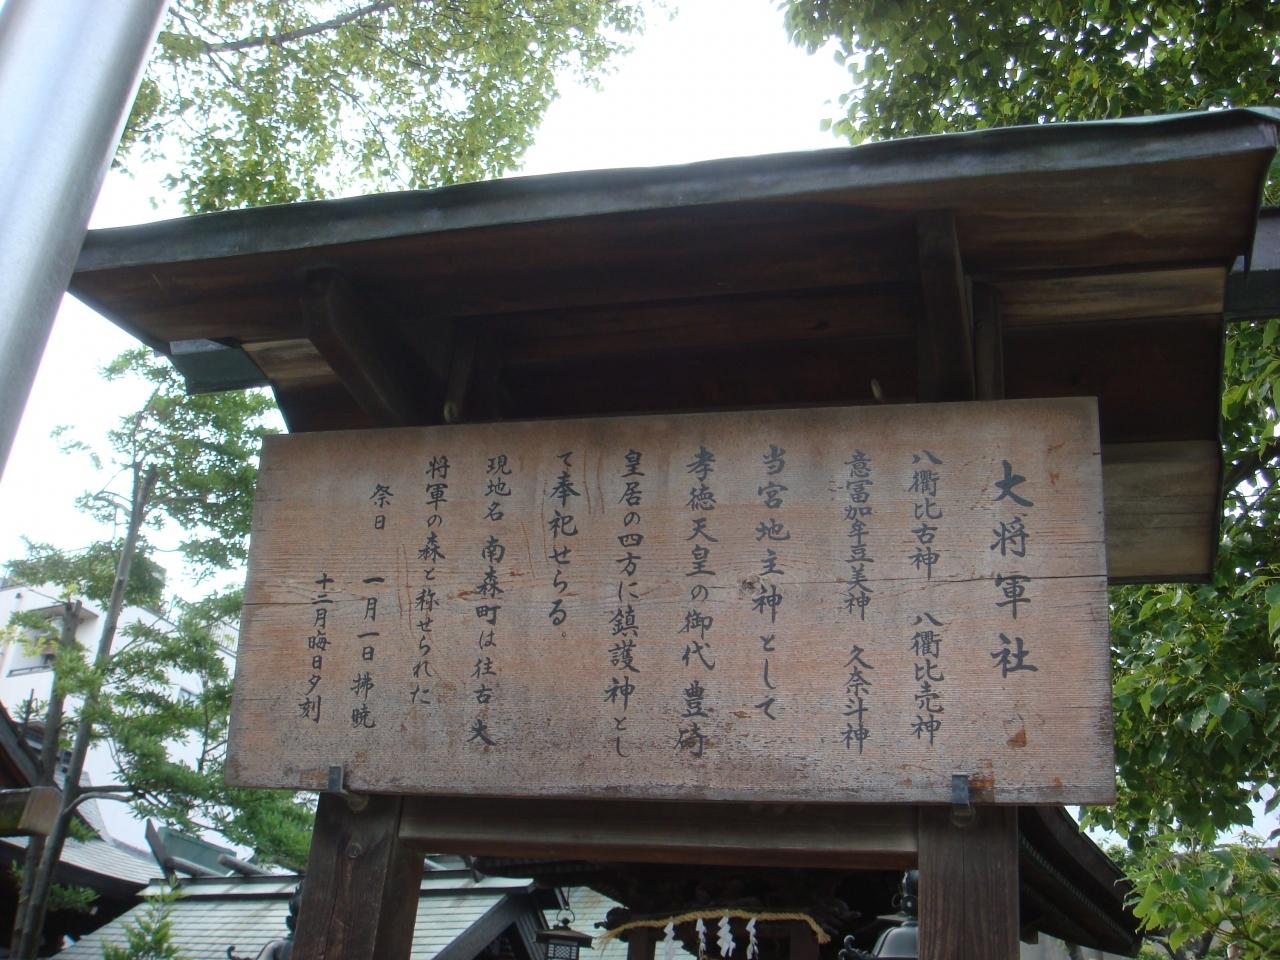 大将軍社
八衢比古神 八衢比売神
意冨加牟豆美神 久奈斗神
当宮地主神として
孝徳天皇の御代 豊碕
皇居の四方に鎮護神とし
て奉祀せらる。
現地名 南森町は往古 大
将軍の森と称せられた
祭日 一月一日拂暁
十二月晦日夕刻